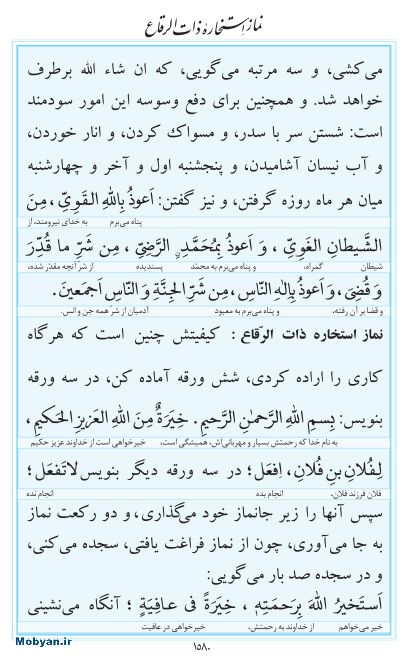 نماز استخارهٔ ذات الرقاع
می‌کشی، و سه مرتبه می‌گویی، که ان شاء الله برطرف
خواهد شد. و همچنین برای دفع وسوسه این امور سودمند
است: شستن سر با سدر، و مسواک کردن، و انار خوردن،
و آب نیسان آشامیدن، و پنجشنبه اول و آخر و چهارشنبه
میان هر ماه روزه گرفتن، و نیز گفتن: اَعوذُ بِاللهِ القَوِیِّ، مِنَ
پناه می‌برم به خدای نیرومند، از
الشَّیطانِ الغَوِیِّ، وَ اَعوذُ بِمُحَمَّدٍ الرَّضِیِّ، مِن شَرِّ ما قُدِّرَ
شیطان گمراه، و پناه می‌برم به محمّد پسندیده از شرّ آنچه مقدّر شده،
وَ قُضِیَ، وَ اَعوذُ بِاِلٰهِ النّاسِ، مِن شَرِّ الجِنَّةِ وَ النّاسِ اَجمَعینَ.
و قضا بر آن رفته، و پناه می‌برم به معبود آدمیان از شر همه جن و انس.
نماز استخاره ذات الرّقاع: کیفیتش چنین است که هرگاه
کاری را اراده کردی، شش ورقه آماده کن، در سه ورقه
بنویس: بِسمِ اللهِ الرَّحمٰنِ الرَّحیمِ. خِیَرَةٌ مِنَ اللهِ العَزیزِ الحَکیمِ،
به نام خدا که رحمتش بسیار و مهربانی‌اش، همیشگی است، خیرخواهی است از خداوند عزیز حکیم
لِفُلانِ بنِ فُلانٍ، اِفعَل؛ در سه ورقه دیگر بنویس لاتَفعَل؛
فلان فرزند فلان، انجام بده انجام نده
سپس آنها را زیر جانماز خود می‌گذاری، و دو رکعت نماز
به جا می‌آوری، چون از نماز فراغت یافتی، سجده می‌کنی، و
و در سجده صد بار می‌گویی:
اَستَخیرُ اللهَ بِرَحمَتِهِ، خِیَرَةً فی عافِیَةٍ؛ آنگاه می‌نشینی
خیر می‌خواهم از خداوند به رحمتش، خیرخواهی در عافیت
Mobyan.ir
۱۵۸۰